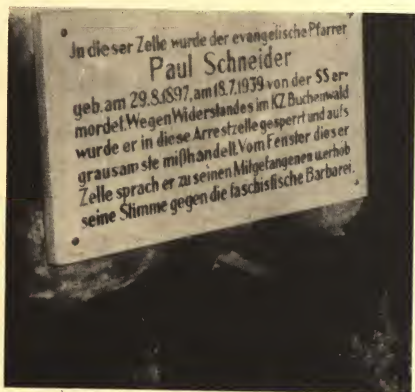 In dieser Zelle wurde der evangelische Pfarrer
Paul Schneider
geb. am 29.8.1897, am 18.7.1939 von der SS er-
mordet. Wegen Widerstandes im KZ Buchenwald
wurde er in diese Arrestzelle gesperrt und aufs
grausamste mißhandelt. Vom Fenster dieser
Zelle sprach er zu seinen Mitgefangenen u. erhob
seine Stimme gegen die faschistische Barbarei.